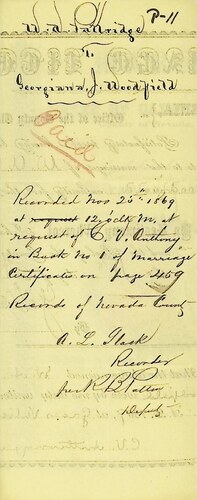 P-11
W. A. Partridge
To
Georgiana J. Woodfield
Paid
Recorded Nov 25th 1869
at request 12 oclk M. at
request of C. V. Anthony
in Book No 1 of Marriage
Certificates on page 459
Records of Nevada County
A. L. Flack
Recorder
per R B Patton
Deputy